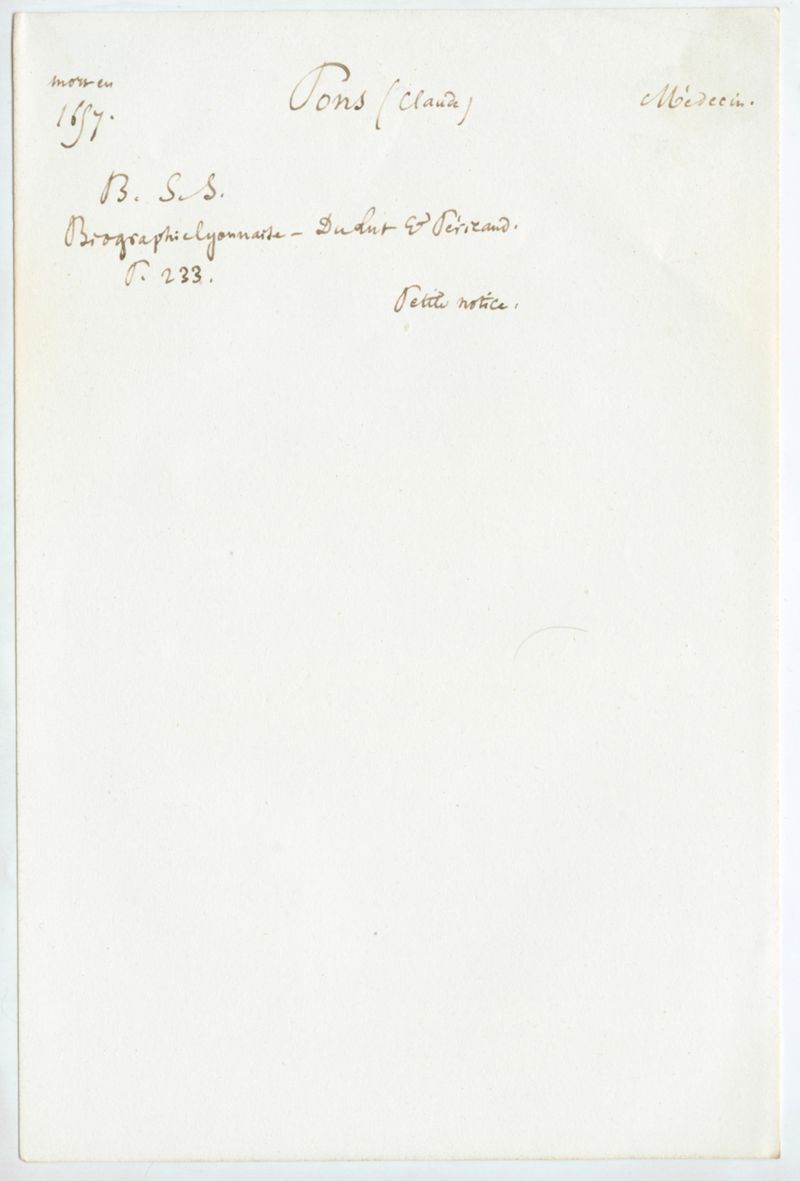 mort en
1657.
Pons (Claude)
Médecin.
B. S. S.
Biographie lyonnaise - Dulut & Péricaud.
P. 233.
Petite notice.